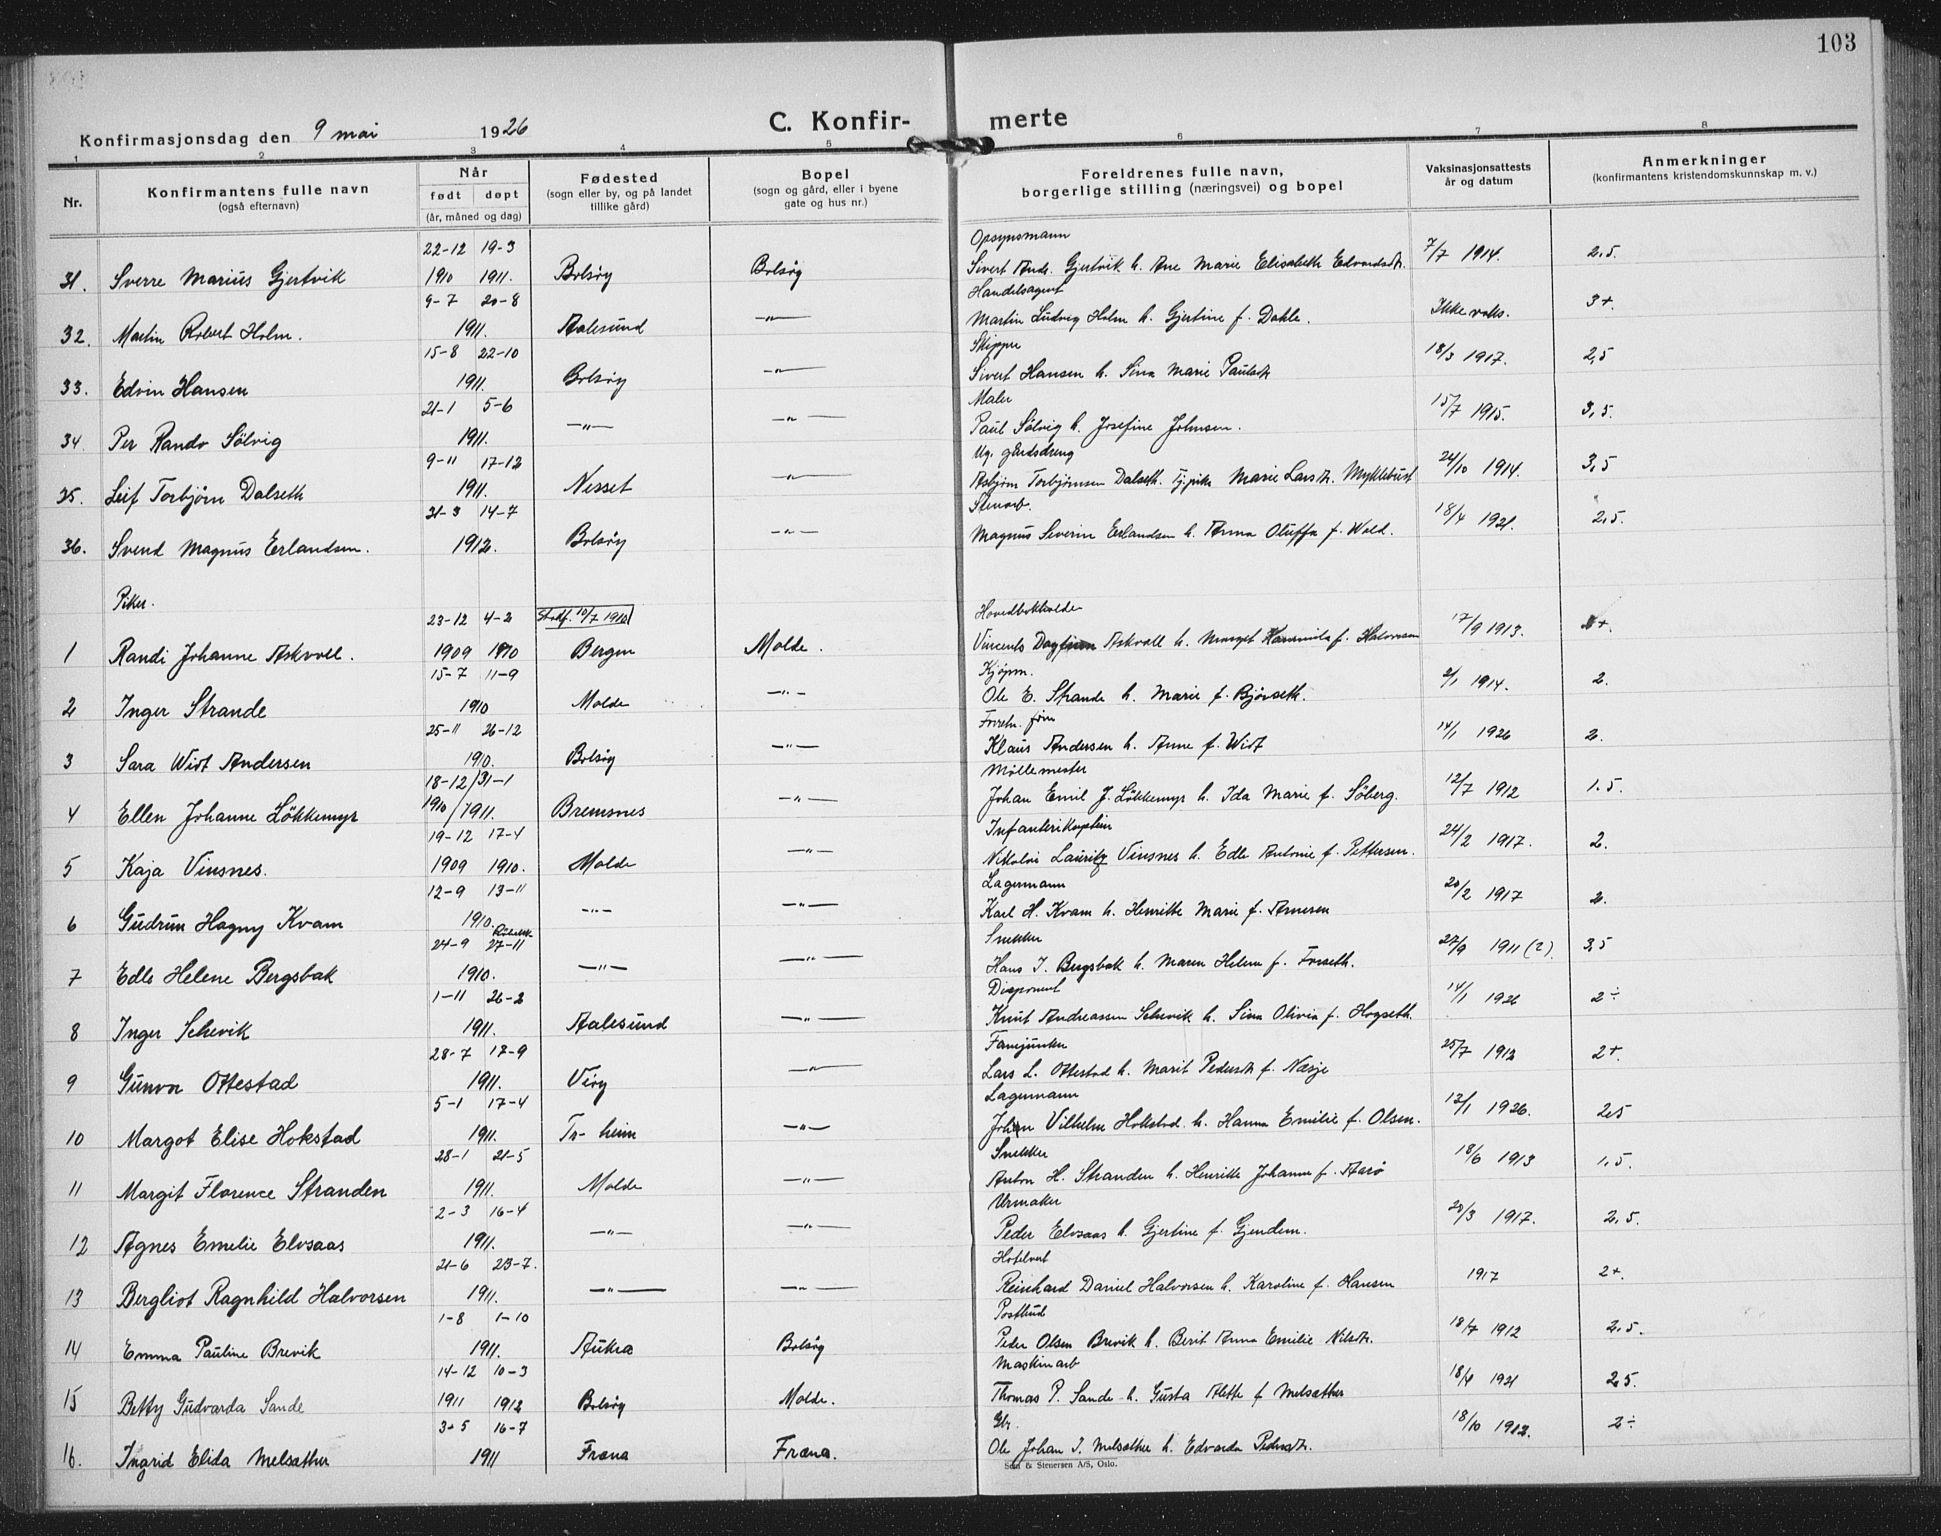 103
Konfirmasjonsdag den 9 mai 1926
C. Konfir- merte
1 2 3 4 5 6 7 8
Nr. Konfirmantens fulle navn (også efternavn) Når født døpt (år, måned og dag) Fødested (sogn eller by, og på landet tillike gård) Bopel (sogn og gård, eller i byene gate og hus nr.) Foreldrenes fulle navn, borgerlige stilling (næringsvei) og bopel Vaksinasjonsattests år og datum Anmerkninger (konfirmantens kristendomskunnskap m. v.)
22-12 19-3 Opsynsmann
31. Sverre Marius Gjertvik 1910 1911. Bolsøy Bolsøy Sivert Andr. Gjertvik h. Ane Marie Elisabeth Edvardsdt. 7/7 1914. 2,5.
9-7 20-8 Handelsagent
32. Martin Robert Holm. 1911. Aalesund -"- Martin Ludvig Holm h. Gjertine f. Dahle. Ikke vaks. 3+
15-8 22-10 Skipper
33. Edvin Hansen 1911. Bolsøy -"- Sivert Hansen h. Sina Marie Paulsdt 18/3 1917. 2,5
21-1 5-6 Maler
34 Per Randv Sölvig 1911. -"- -"- Paul Sölvig h. Josefine Johnsen. 15/7 1915. 3,5.
9-11 17-12 Ug. gårdsdreng
35. Leif Torbjörn Dalseth 1911. Nesset -"- Asbjörn Torbjörnsen Dalseth. Tj.pike Marie Larsdt. Myklebust 24/10 1914. 3,5
21-3 14-7 Stenarb.
36. Svend Magnus Erlandsen. 1912. Bolsøy -"- Magnus Severin Erlandsen h. Anna Oluffa f. Wold. 18/4 1921. 2,5.
Piker.
23-12 4-2 Stadf. 10/7 1910 Hovedbokholder
1 Randi Johanne Askvoll. 1909 1910 Bergen Molde. Vincents Dagfinn Askvoll h. Margit f. Halvorsen 17/9 1913. +.
15-7 11-9 Kjøpm.
2 Inger Strande 1910 Molde -"- Ole E. Strande h. Marie f. Bjørseth. 2/1 1914. 2.
25-11 26-12 Forretn. före
3 Sara Widt Andersen 1910. Bolsøy -"- Klaus Andersen h. Anne f. Widt 14/1 1926 2.
18-12/31-1 Möllemester
4 Ellen Johanne Lökkemyr 1910/1911. Bremsnes -"- Johan Emil J. Lökkemyr h. Ida Marie f. Söberg. 12/7 1912 1.5.
19-12 17-4 Infanterikaptein
5 Kaja Vinsnes. 1909 1910. Molde -"- Nikolai Lauritz Vinsnes h. Edle Antonie f. Pettersen. 24/2 1917. 2.
12-9 13-11 Lagermann
6 Gudrun Hagny Kvam 1910. -"- -"- Karl H. Kvam h. Henrikke Marie f. Arnesen 20/2 1917 2.
24-9 27-11 Snekker
7 Edle Helene Bergsbak 1910. -"- -"- Hans J. Bergsbak h. Maren Helene f. Forseth. 27/9 1911 (2) 3,5
1-11 26-2 Disponent
8 Inger Schevik 1911. Aalesund -"- Knut Andreassen Schevik h. Sina Olivia f. Hogseth. 14/1 1926 2÷
28-7 17-9 Fanejunker
9 Gunvor Ottestad 1911. Veøy -"- Lars L. Ottestad h. Marit Pedersdt f. Næsje 25/7 1912 2+.
5-1 17-4 Lagermann
10 Margot Elise Hokstad 1911. Tr-heim -"- Johan Vilhelm Hokstad. h. Hanna Emilie f. Olsen. 12/1 1926. 2,5
28-1 21-5 Snekker
11 Margit Florence Stranden 1911. Molde -"- Anton H. Stranden h. Henrikke Johanne f. Aarö 18/6 1913 1,5.
2-3 16-4 Urmaker
12 Agnes Emelie Elvsaas 1911. -"- -"- Peder Elvsaas h. Gjertine f. Gjendem. 20/3 1917. 2,5.
21-6 23-7. Hotelvert
13 Bergliot Ragnhild Halvorsen 1911. -"- -"- Reinhard Daniel Halvorsen h. Karoline f. Hansen 1917 2+.
1-8 1-10 Postbud
14 Emma Pauline Brevik 1911. Aukra Bolsøy Peder Olsen Brevik h. Berit Anna Emilie Nilsdt. 18/7 1912 2,5.
14-12 10-3 Maskinarb
15 Betty Gudvarda Sande 1911 1912 Bolsøy Molde. Thomas P. Sande h. Gusta Alette f Melsæther 18/4 1921 2,5.
3-5 16-7 Gbr.
16. Ingrid Elida Melsæther 1911 Fræna Fræna. Ole Johan J. Melsæther h. Edvarda Pedersdt. 18/10 1912. 2÷
Sem & Stenersen A/S, Oslo.